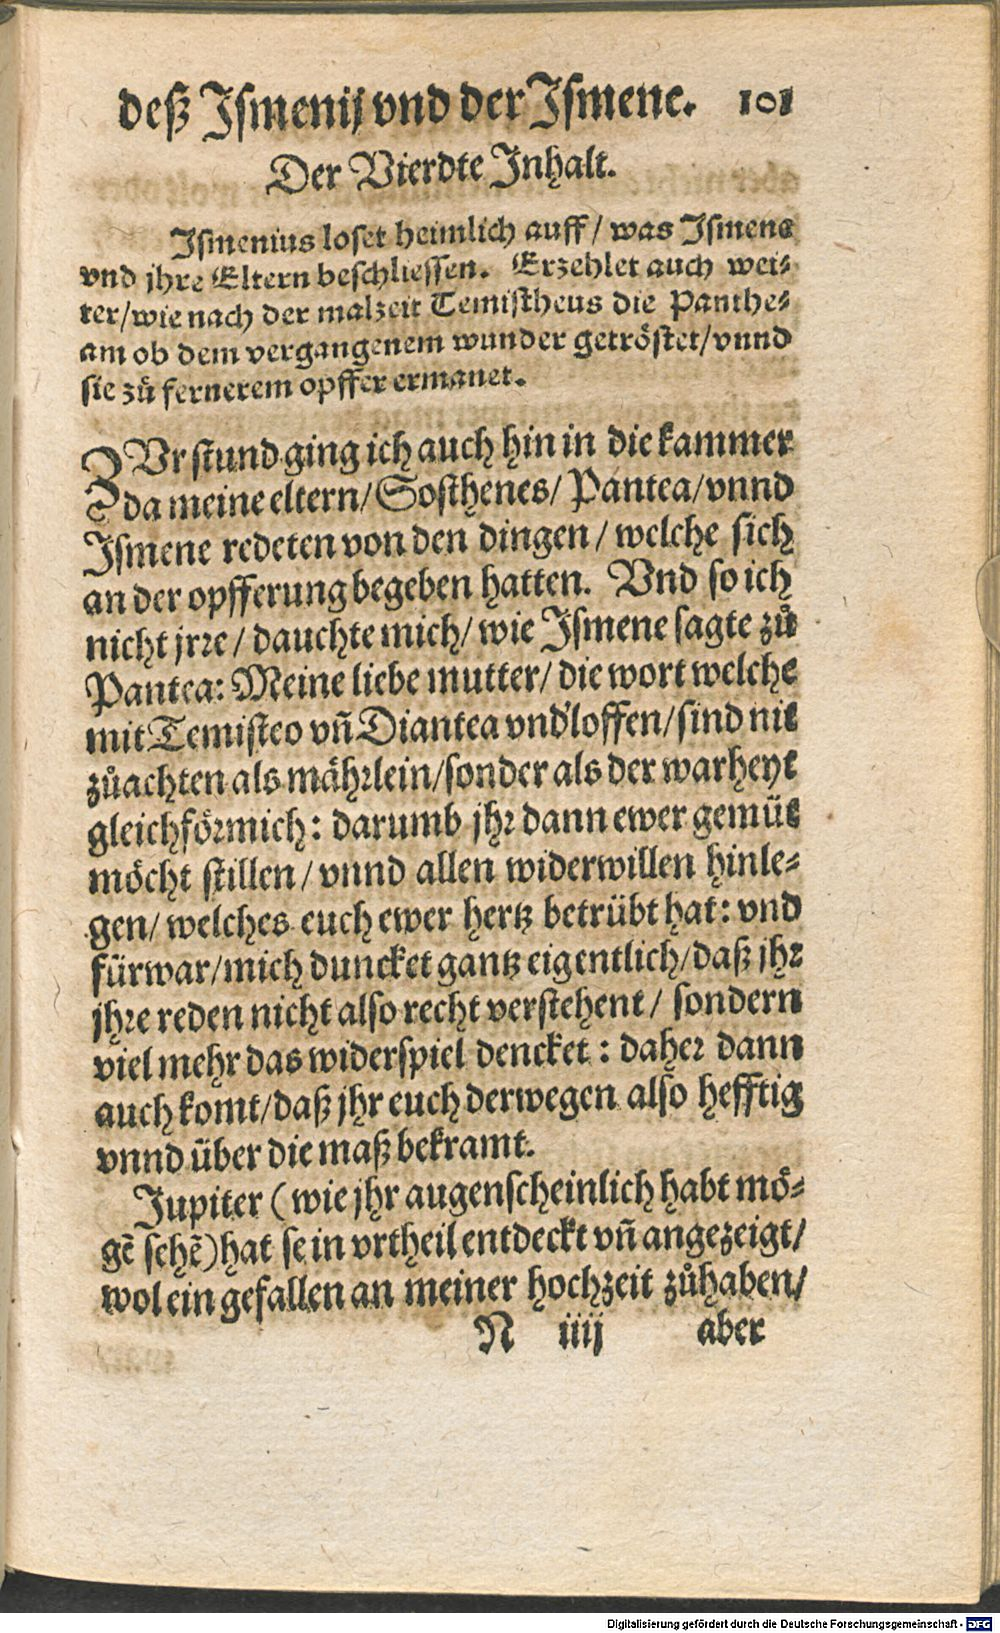 deß Iſmenij vnd der Iſmene. 101
Der Vierdte Inhalt.
Iſmenius loſet heimlich auff / was Iſmene
vnd jhre Eltern beſchlieſſen. Erzehlet auch wei⸗
ter/wie nach der malzeit Temiſtheus die Panthe⸗
am ob dem vergangenem wunder getröſtet/vnnd
ſie zů fernerem opffer ermanet.
ZVr ſtund ging ich auch hin in die kammer
da meine eltern/Soſthenes/ Pantea/vnnd
Iſmene redeten von den dingen / welche ſich
an der opfferung begeben hatten. Vnd ſo ich
nicht jrꝛe / dauchte mich/ wie Iſmene ſagte zů
Pantea: Meine liebe mutter/ die wort welche
mit Temiſteo vñ Diantea vnd'loffen/ſind nit
zůachten als mährlein/ſonder als der warheyt
gleichfoͤꝛmich: darumb jhꝛ dann ewer gemüt
möcht ſtillen / vnnd allen widerwillen hinle⸗
gen/ welches euch ewer hertz betrübt hat: vnd
fürwar/mich duncket gantz eigentlich/daß jhꝛ
jhꝛe reden nicht alſo recht verſtehent / ſondern
viel mehr das widerſpiel dencket : daheꝛ dann
auch komt/daß jhr euch derwegen alſo hefftig
vnnd über die maß bekramt.
Jupiter (wie jhr augenſcheinlich habt mö⸗
gẽ ſehẽ)hat ſein vrtheil entdeckt vñ angezeigt/
wol ein gefallen an meiner hochzeit zůhaben/
N iiij aber
Digitalisierung gefördert durch die Deutsche Forschungsgemeinschaft - DFG